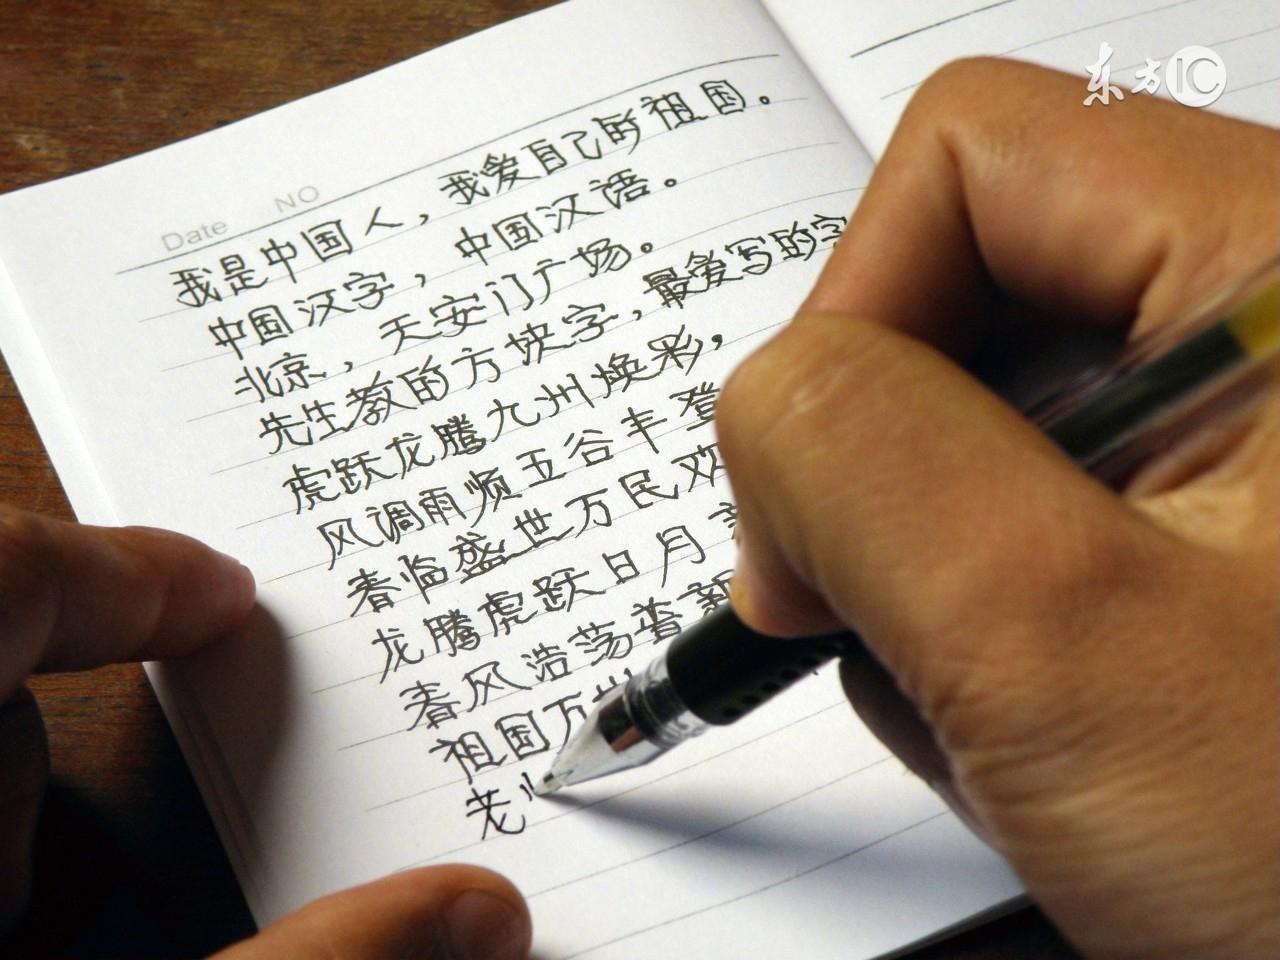 东方IC
Date NO
我是中国人，我爱自己的祖国。
中国汉字，中国汉语。
北京，天安门广场。
先生教的方块字，最爱写的字
虎跃龙腾九州焕彩，
风调雨顺五谷丰登
春临盛世万民欢
龙腾虎跃日月
春风浩荡普新
祖国万
老